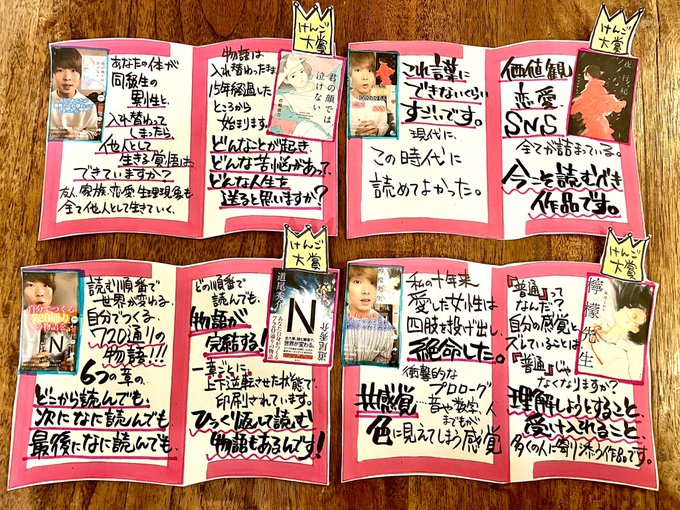 けんご
大賞
あなたの体が
同級生の
異性と、
入れ替わって
しまったら、
他人として
生きる覚悟は
できていますか?
友人、家族、恋愛、生理現象も
全て他人として生きていく。
物語は
入れ替わったまま、
15年経過した
ところから
始まります。
どんなことが起き、
どんな苦悩があって、
どんな人生を
送ると思いますか?
君の顔では
泣けない
けんご
大賞
これ言葉に
できないくらい
すごいです。
現代に、
この時代に
読めてよかった。
価値観
恋愛
SNS
全てが詰まっている。
今こそ読むべき
作品です。
けんご
大賞
読む順番で
世界が変わる。
自分でつくる、
720通りの
物語!!!
6つの章の、
どこから読んでも、
次になに読んでも、
最後になに読んでも、
どの順番で
読んでも、
物語が
完結する!
一章ごとに、
上下逆転させた状態で、
印刷されています。
ひっくり返して読む
物語もあるんです!
自分でつくる
720通り
の物語
N
道尾秀介
N
けんご
大賞
私の十年来
愛した女性は
四肢を投げ出し、
絶命した。
衝撃的な
プロローグ
共感覚…音や数字、人
までもが、
色に見えてしまう感覚
『普通』って
なんだ?
自分の感覚と
ズレていることは
『普通』じゃ
なくなりますか?
理解しようとすること、
受け入れること、
多くの人に寄り添う作品です。
檸檬先生